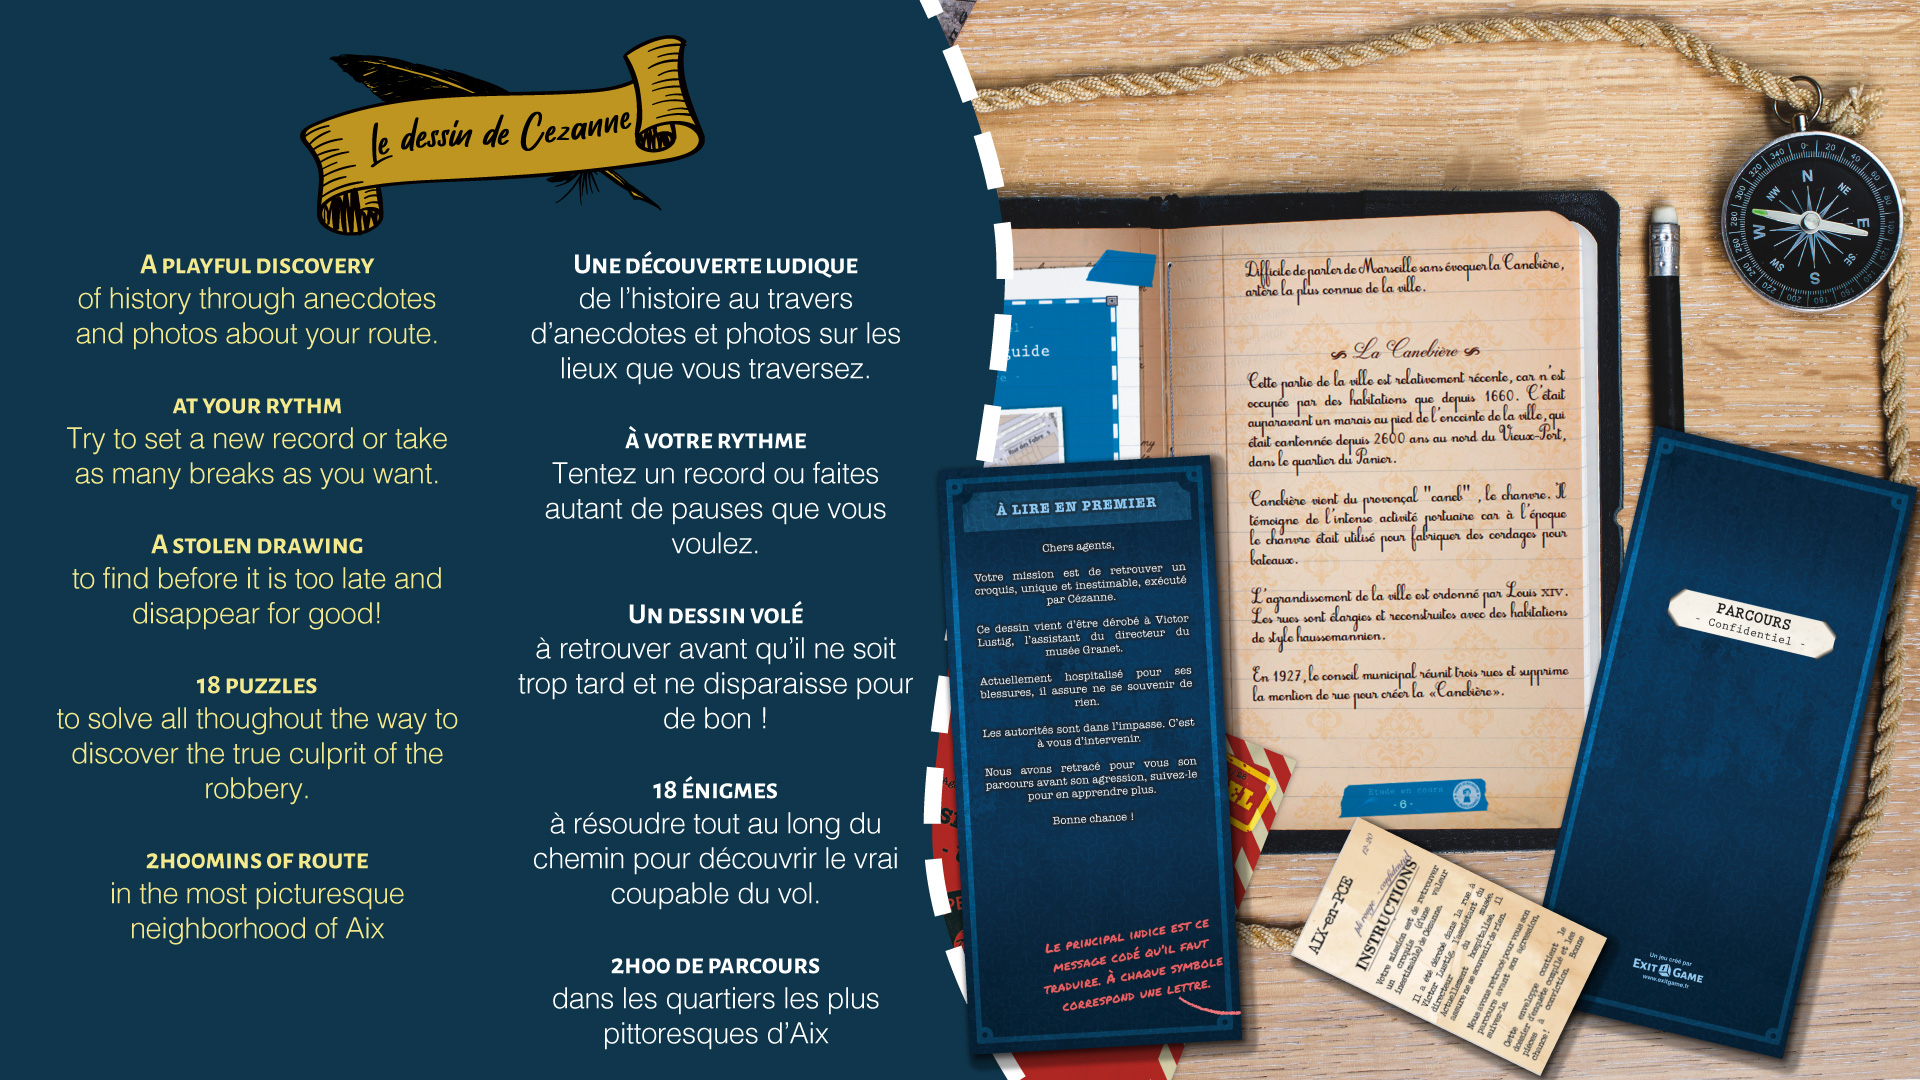 Le dessin de Cezanne
A PLAYFUL DISCOVERY
of history through anecdotes
and photos about your route.
AT YOUR RYTHM
Try to set a new record or take
as many breaks as you want.
A STOLEN DRAWING
to find before it is too late and
disappear for good!
18 PUZZLES
to solve all thoughout the way to
discover the true culprit of the
robbery.
2H00MINS OF ROUTE
in the most picturesque
neighborhood of Aix
UNE DÉCOUVERTE LUDIQUE
de l'histoire au travers
d'anecdotes et photos sur les
lieux que vous traversez.
À VOTRE RYTHME
Tentez un record ou faites
autant de pauses que vous
voulez.
UN DESSIN VOLÉ
à retrouver avant qu'il ne soit
trop tard et ne disparaisse pour
de bon !
18 ÉNIGMES
à résoudre tout au long du
chemin pour découvrir le vrai
coupable du vol.
2H00 DE PARCOURS
dans les quartiers les plus
pittoresques d'Aix
guide
À LIRE EN PREMIER
Chers agents,
Votre mission est de retrouver un
croquis, unique et inestimable, exécuté
par Cézanne.
Ce dessin vient d'être dérobé à Victor
Lustig, l'assistant du directeur du
musée Granet.
Actuellement hospitalisé pour ses
blessures, il assure ne se souvenir de
rien.
Les autorités sont dans l'impasse. C'est
à vous d'intervenir.
Nous avons retracé pour vous son
parcours avant son agression, suivez-le
pour en apprendre plus.
Bonne chance !
LE PRINCIPAL INDICE EST CE
MESSAGE CODÉ QU'IL FAUT
TRADUIRE. À CHAQUE SYMBOLE
CORRESPOND UNE LETTRE.
Difficile de parler de Marseille sans évoquer la Canebière,
artère la plus connue de la ville.
La Canebière
Cette partie de la ville est relativement récente, car n'est
occupée par des habitations que depuis 1660. C'était
auparavant un marais au pied de l'enceinte de la ville, qui
était cantonnée depuis 2600 ans au nord du Vieux-Port,
dans le quartier du Panier.
Canebière vient du provençal "caneb" , le chanvre. Il
témoigne de l'intense activité portuaire car à l'époque
le chanvre était utilisé pour fabriquer des cordages pour
bateaux.
L'agrandissement de la ville est ordonné par Louis XIV.
Les rues sont élargies et reconstruites avec des habitations
de style haussemannien.
En 1927, le conseil municipal réunit trois rues et supprime
la mention de rue pour créer la «Canebière».
Etude en cours
-6-
AIX-en-PCE
INSTRUCTIONS
Votre mission est de retrouver
un croquis (d'une valeur
inestimable) de Cézanne.
Il a été dérobé dans la rue à
Victor Lustig, l'assistant du
directeur du musée.
Actuellement hospitalisé, il
assure ne se souvenir de rien.
Nous avons retracé pour vous son
parcours avant son agression,
suivez-le.
Cette enveloppe contient le
dossier d'enquête compilé et les
pièces à conviction. Bonne
chance !
PARCOURS
- Confidentiel -
Un jeu créé par
EXIT GAME
www.exitgame.fr
N
NE
E
SE
S
SW
W
NW